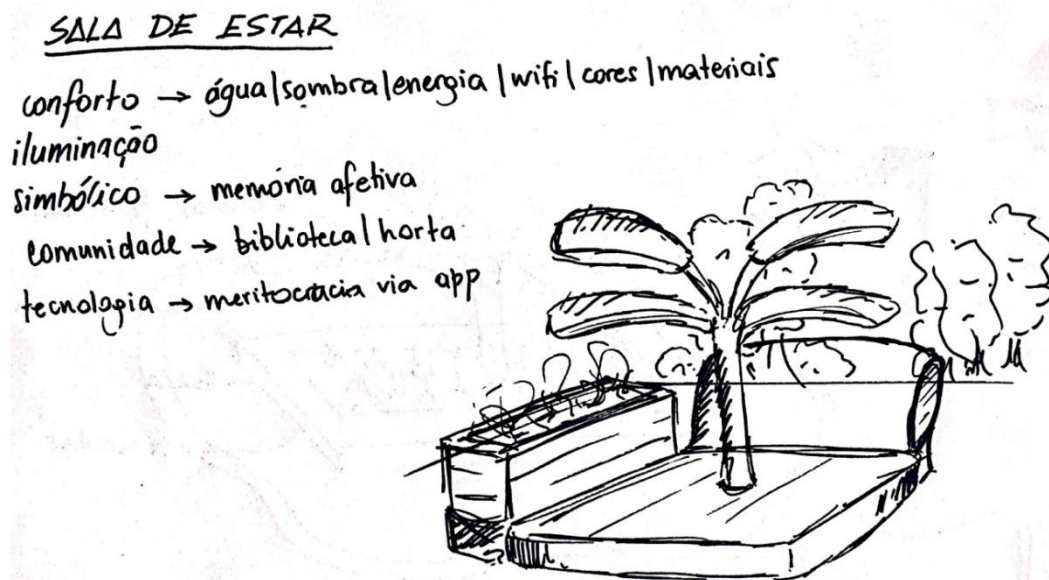 SALA DE ESTAR
conforto → água|sombra|energia|wifi|cores|materiais
iluminação
simbólico → memória afetiva
comunidade → biblioteca|horta
tecnologia → meritocracia via app